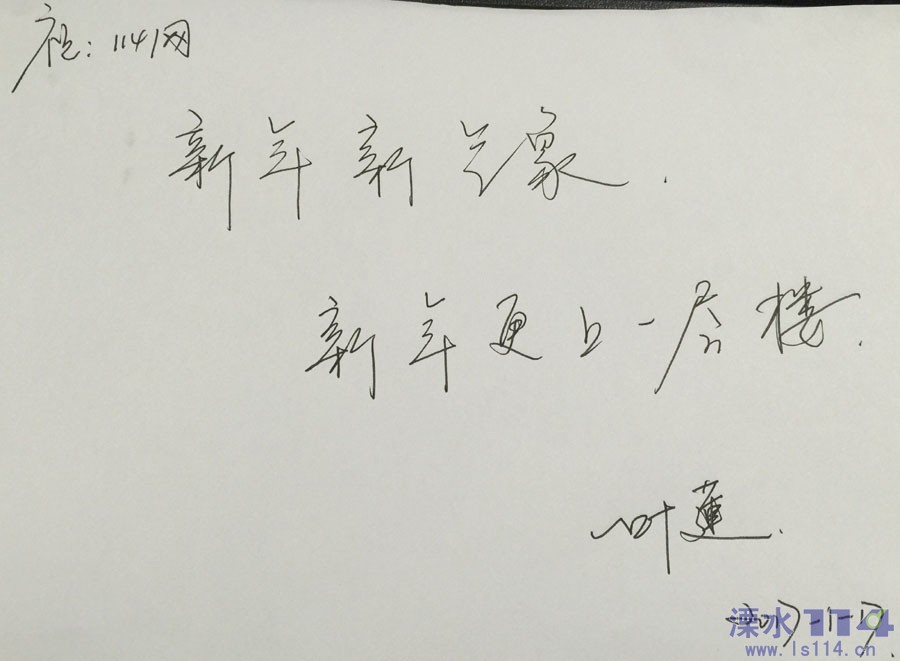 祝：114网
新年新气象.
新年更上一层楼.
叶莲.
2017-1-17.
溧水114
www.ls114.cn